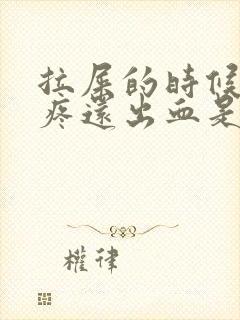 拉屎的時候
疼還出血是
權律